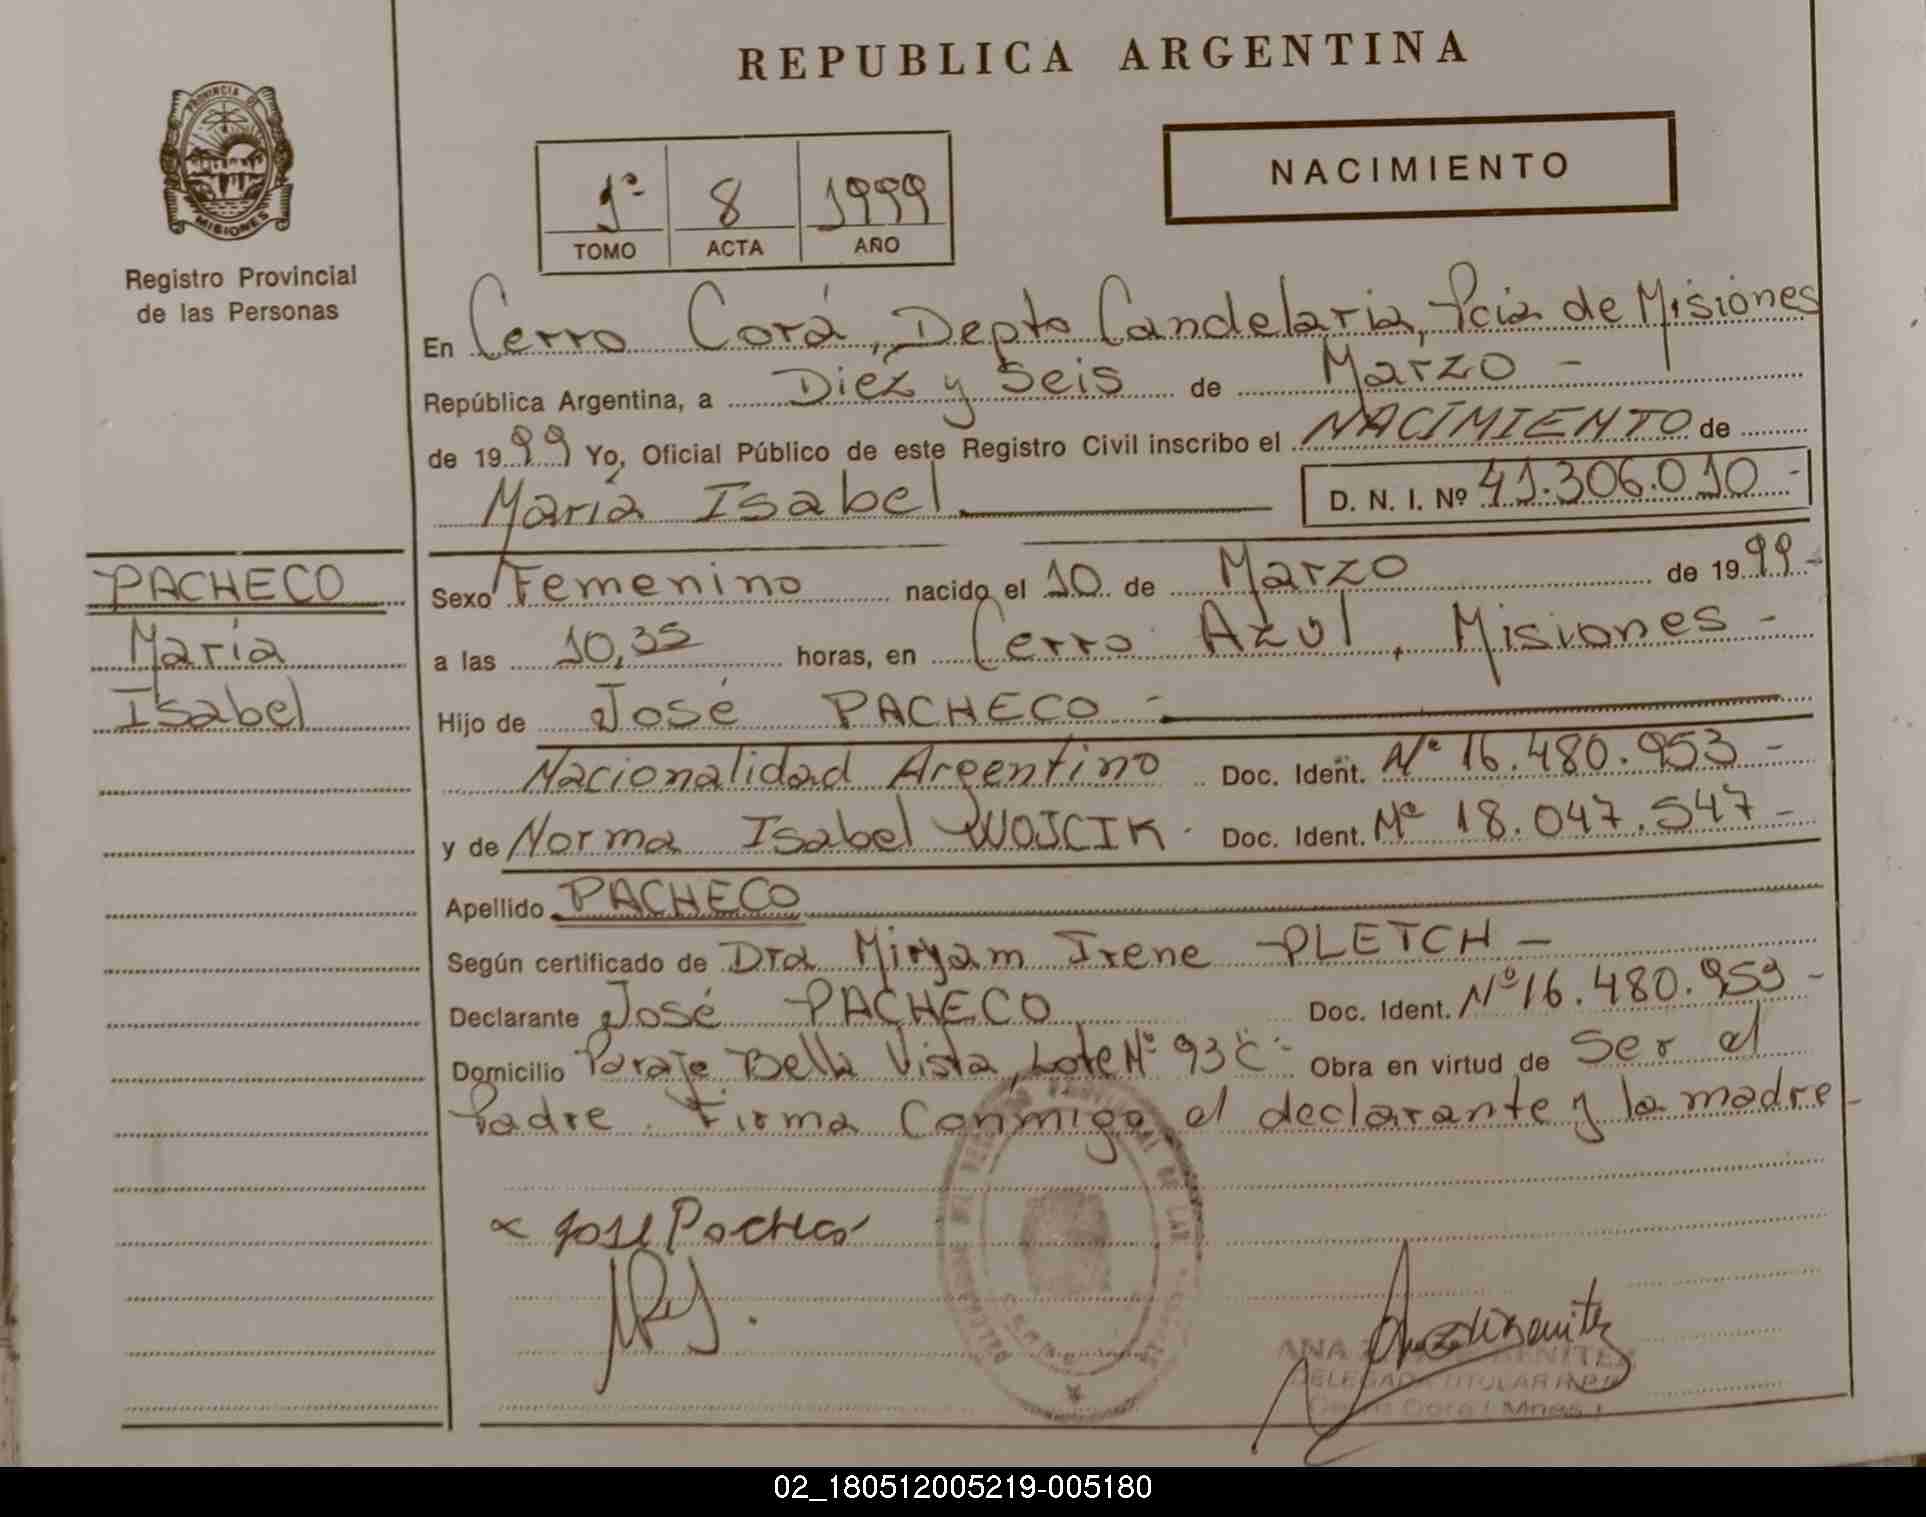 REPUBLICA ARGENTINA
PROVINCIA DE
MISIONES
Registro Provincial
de las Personas
NACIMIENTO
1º 8 1999
TOMO ACTA AÑO
En Cerro Corá, Depto Candelaria, Pcia de Misiones
República Argentina, a Diez y Seis de Marzo -
de 1999 Yo, Oficial Público de este Registro Civil inscribo el NACIMIENTO de
María Isabel. D. N. I. Nº 41.306.010 -
PACHECO
María
Isabel
Sexo Femenino nacido el 10 de Marzo de 1999 -
a las 10,35 horas, en Cerro Azul, Misiones -
Hijo de José PACHECO -
Nacionalidad Argentino Doc. Ident. Nº 16.480.953 -
y de Norma Isabel WOJCIK. Doc. Ident. Nº 18.047.547 -
Apellido PACHECO
Según certificado de Dra Miryam Irene PLETCH -
Declarante José PACHECO Doc. Ident. Nº 16.480.953 -
Domicilio Paraje Bella Vista, Lote Nº 93 C - Obra en virtud de Ser el
Padre. Firma Conmigo el declarante y la madre -
Jose Pacheco
ANA BENITEZ
DELEGADA TITULAR R.P.P.
Cerro Cora ( Mnes )
02_180512005219-005180